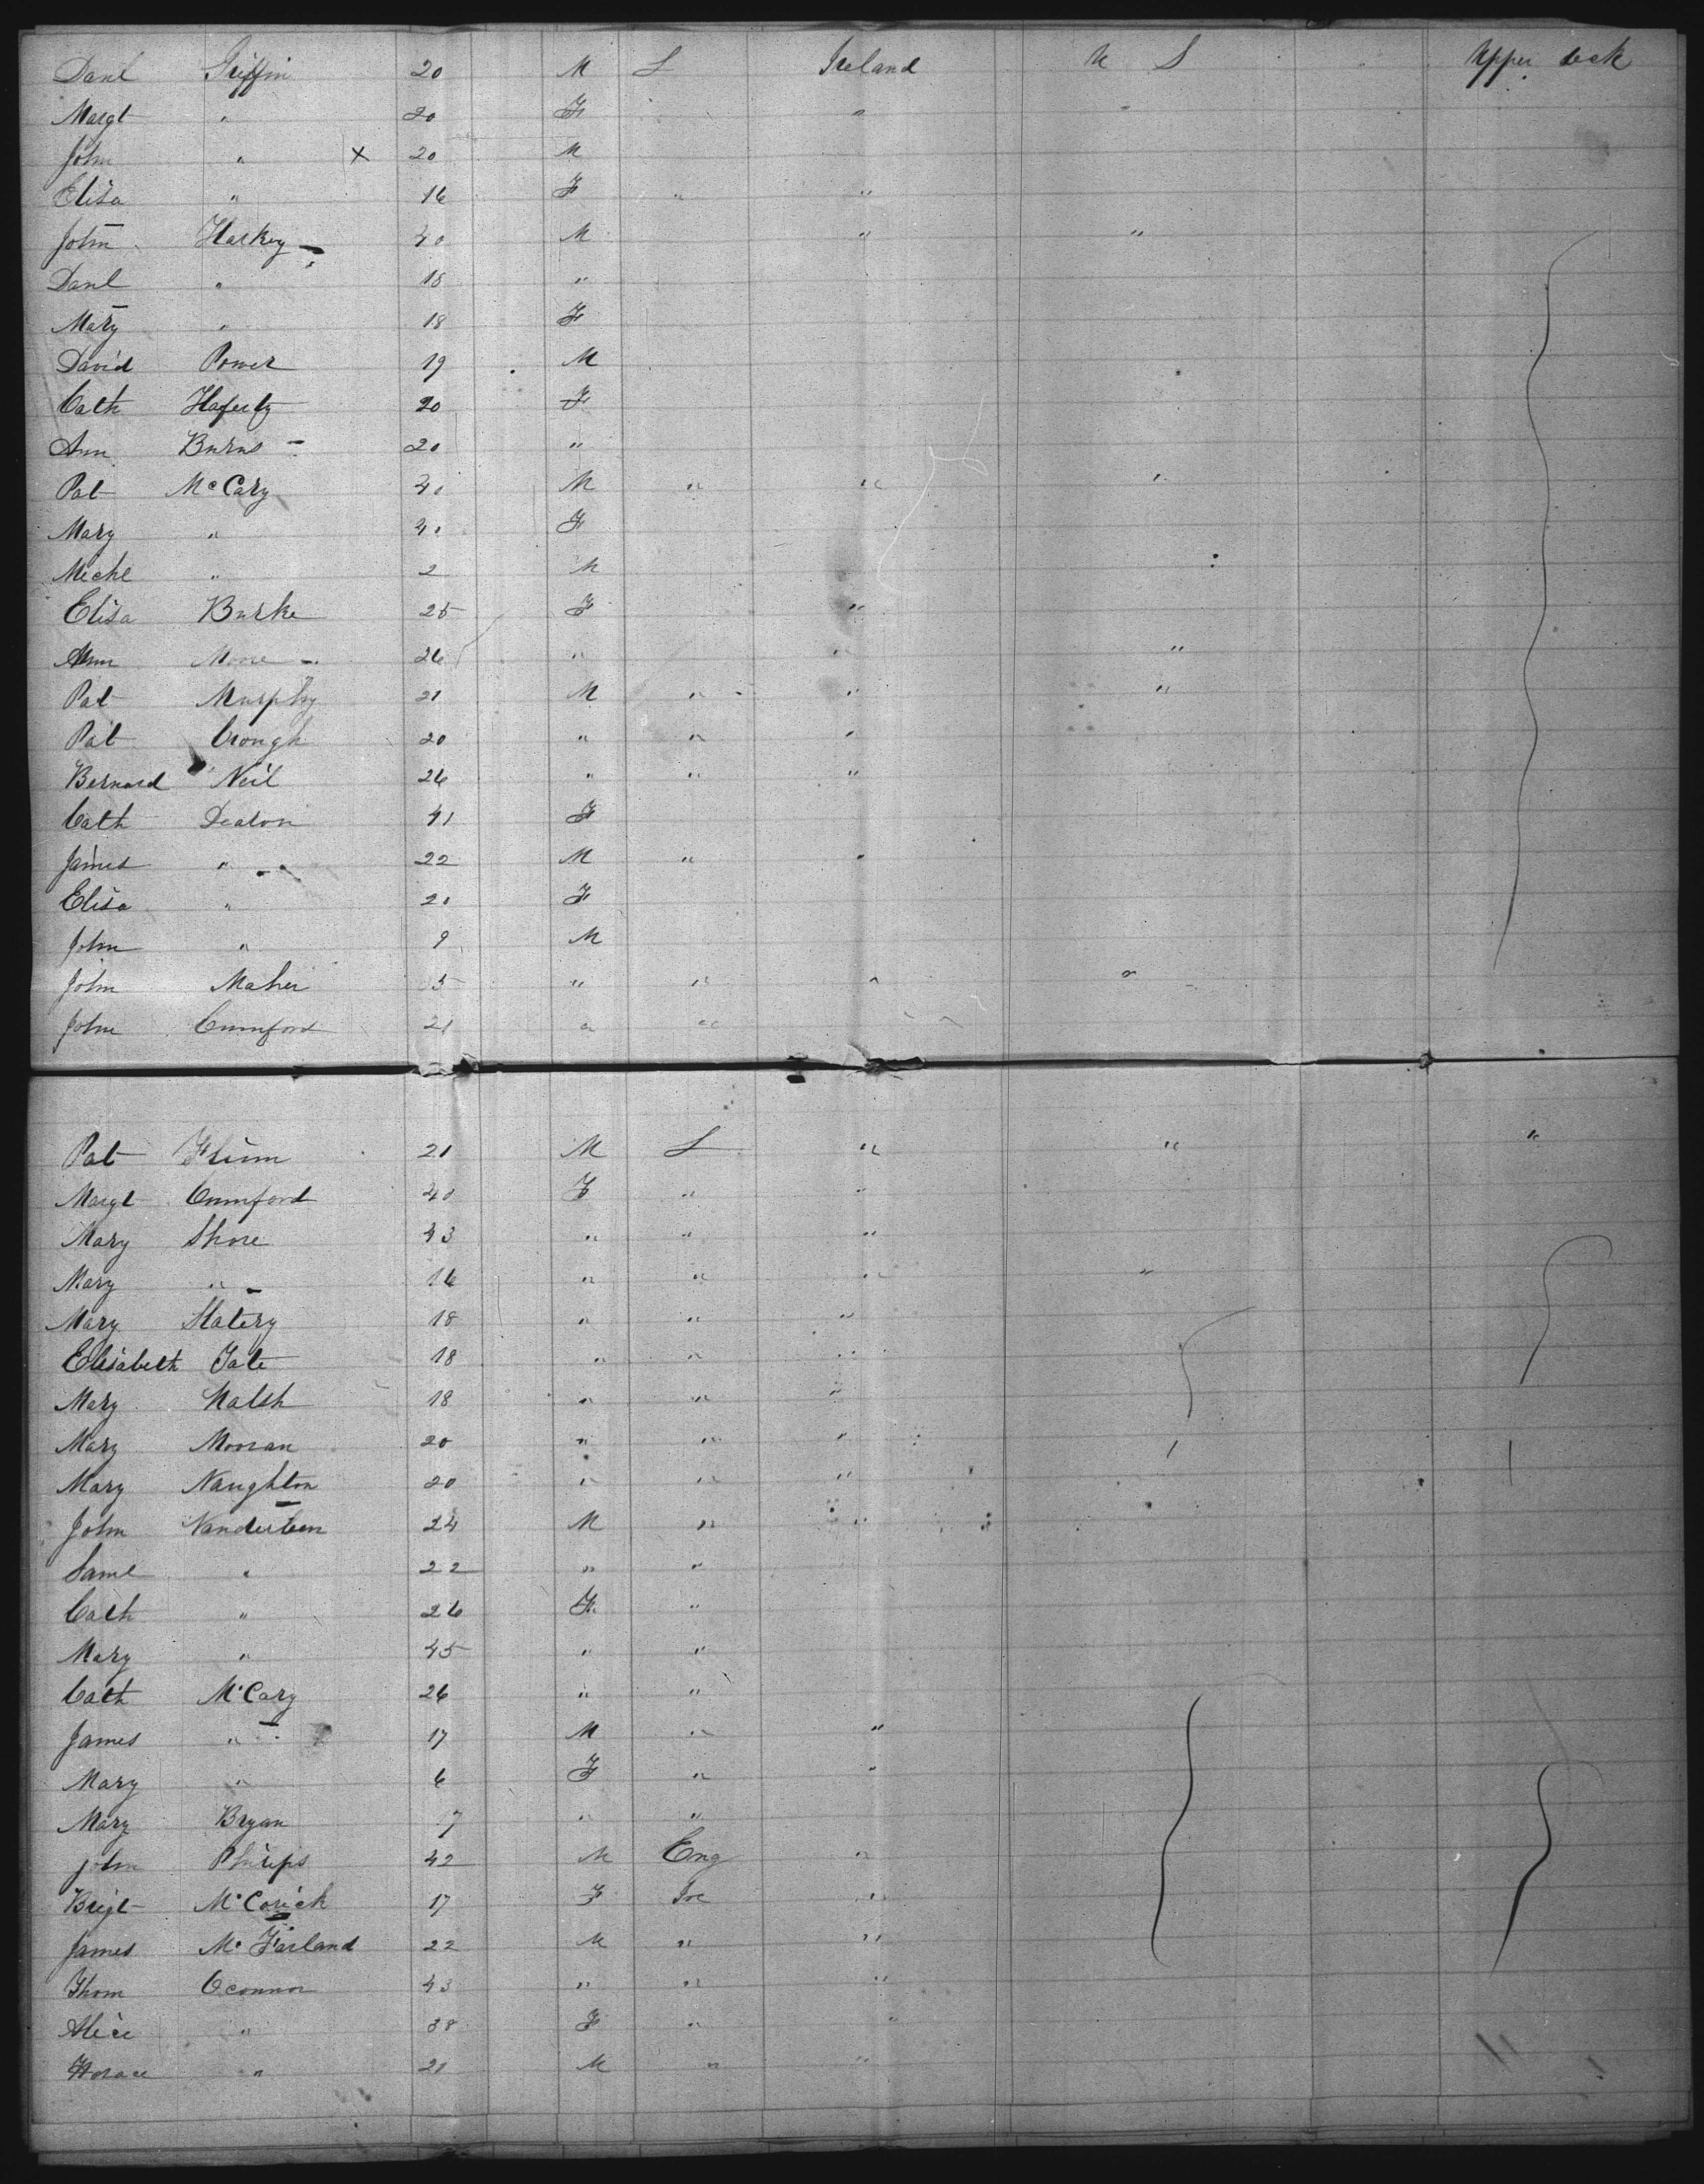 Danl Griffin 20 M L Ireland U S Upper deck
Margt " 20 F " " "
John " x 20 M
Elisa " 16 F " "
John Harkey 40 M " "
Danl " 18 "
Mary " 18 F
David Power 19 M
Cath Haferty 20 F
Ann Burns 20 "
Pat McCary 40 M " " "
Mary " 40 F
Michl " 2 M
Elisa Burke 25 F "
Ann Moore 26 " " "
Pat Murphy 21 M " " "
Pat Crough 20 " " "
Bernard Neil 26 " " "
Cath Deaton 41 F
James " 22 M " "
Elisa " 20 F
John " 9 M
John Maher " " " "
John Cumford 21 " " "
Pat Flinn 21 M L " " "
Margt Cumford 40 F " "
Mary Shore 43 " " "
Mary " 16 " " " "
Mary Slatery 18 " " "
Elisabeth Tate 18 " " "
Mary Walsh 18 " " "
Mary Mooran 20 " " "
Mary Naughton 20 " " "
John 24 M " "
Saml " 22 " "
Cath " 26 F "
Mary " 45 " "
Cath McCary 26 " "
James " 17 M " "
Mary " 6 F " "
Mary Bryan 7 " "
John Phirips 42 M Eng "
Brigt McCorick 17 F Ire "
James McFarland 22 M " "
Thom Oconnor 43 " " "
Alice " 38 F " "
Horace " 21 M " "